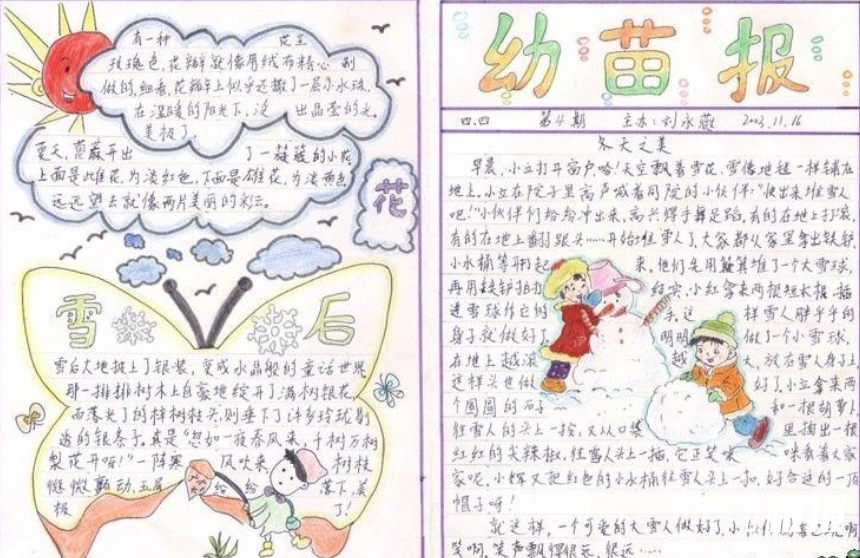 有一种 花 玫瑰色,花瓣就像用绒布精心制
做的,细看,花瓣上似乎还撒了一层小水珠,
在温暖的阳光下,泛 出晶莹的光。
美极了
夏天,蔷薇开出 了一簇簇的小花
上面是雌花,为淡红色,下面是雄花,为淡黄色
远远望去就像两片美丽的彩云。
花
雪 后
雪后大地披上了银装,变成水晶般的童话世界。
那一排排树木上自豪地绽开了满树银花,
而落光了的梓树枝头,则垂下了许多玲珑剔
透的银条子。真是“忽如一夜春风来,千树万树
梨花开呀!”一阵寒 风吹来, 树枝
微微颤动,玉屑 纷 纷 落下,美
极 了!
幼苗报
四.四 第4期 主办:刘永薇 2003.11.16
冬天之美
早晨,小立打开窗户哈!天空飘着雪花,雪像地毯一样铺在
地上。小立在院子里高声喊着同院的小伙伴:“快出来堆雪人
吧!”小伙伴们纷纷冲出来,高兴得手舞足蹈,有的在地上打滚,
有的在地上翻跟头……开始堆雪人了,大家都从家里拿出铁铲
小水桶等 来,他们先用簸箕堆了一个大雪球,
再用铁铲拍打 结实,小红拿来两根短木棍插
进雪球作它的 手,这 样雪人胖乎乎的
身子就做好了 明明 做了一个小雪球,
在地上越滚 越 大,放在雪人身上,
这样头也做 好了,小立拿来两
个圆圆的石子 和一根胡萝卜
往雪人的头上一按,又从口袋 里掏出一根
红红的尖辣椒,往雪人头上一插,它正笑咪 咪看着大家
家呢。小辉又把红色的小水桶往雪人头上一扣,好合适的一顶
帽子呀!
就这样,一个可爱的大雪人做好了,小 啊
笑啊,笑声飘得很远,很远……